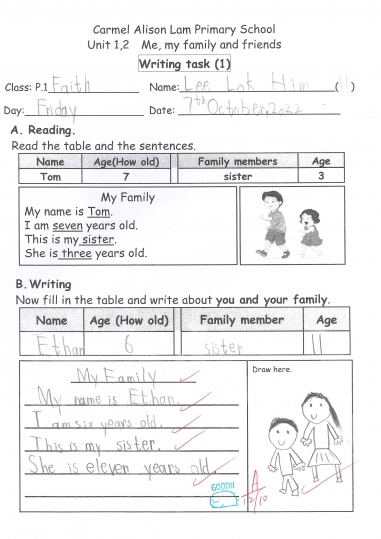 Carmel Alison Lam Primary School
Unit 1,2 Me, my family and friends
Writing task (1)
Class: P.1 Faith Name: Lee Lok Him (11)
Day: Friday Date: 7th October, 2022
A. Reading.
Read the table and the sentences.
Name Age(How old) Family members Age
Tom 7 sister 3
My Family
My name is Tom.
I am seven years old.
This is my sister.
She is three years old.
B. Writing
Now fill in the table and write about you and your family.
Name Age (How old) Family member Age
Ethan 6 sister 11
My Family
My name is Ethan.
I am six years old.
This is my sister.
She is eleven years old.
Draw here.
GOOD!!
A
12/10